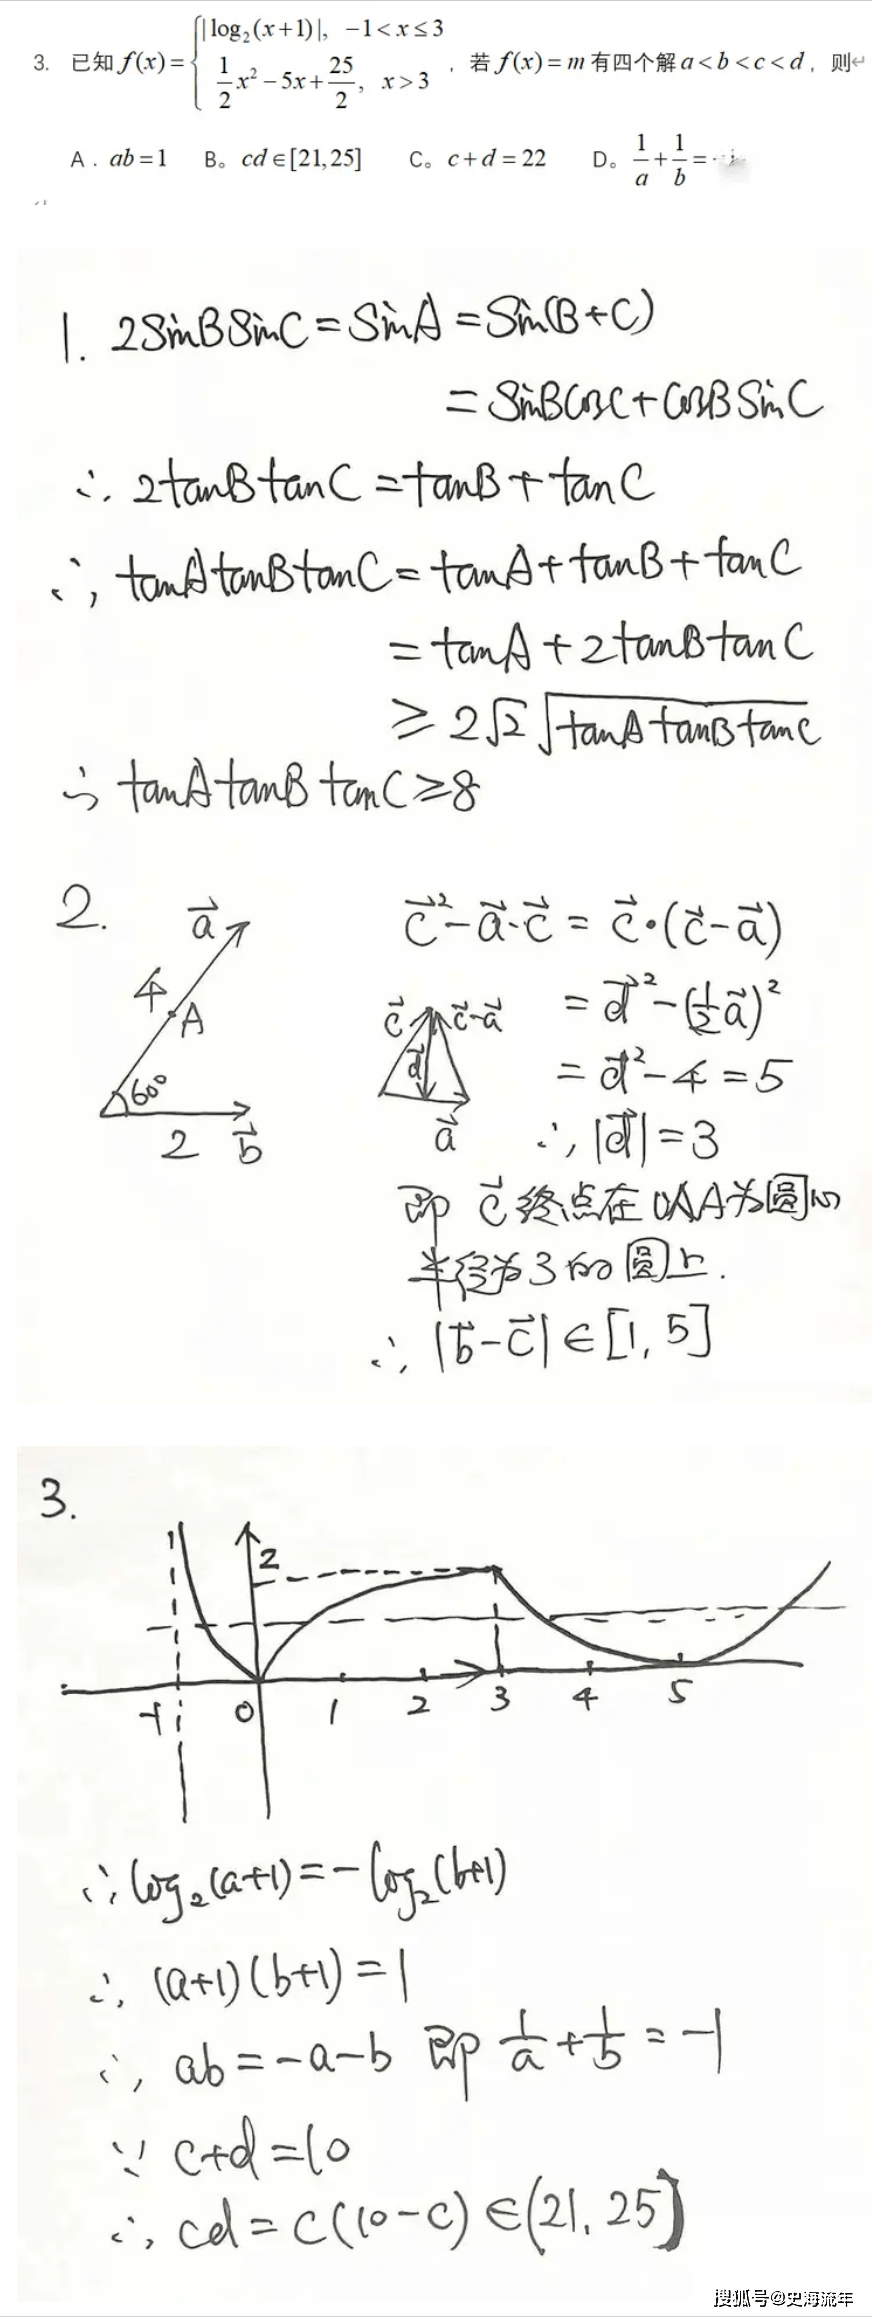 3. 已知 f(x) = { |log₂(x+1)|, -1 < x ≤ 3
1/2 x² - 5x + 25/2, x > 3 , 若 f(x) = m 有四个解 a < b < c < d, 则
A. ab = 1 B。 cd ∈ [21,25] C。 c + d = 22 D。 1/a + 1/b =
1. 2SinBSinC = SinA = Sin(B+C)
= SinBCosC + CosBSinC
∴ 2tanBtanC = tanB + tanC
∴, tanAtanBtanC = tanA + tanB + tanC
= tanA + 2tanBtanC
≥ 2√2 √tanAtanBtanC
∴ tanAtanBtanC ≥ 8
2.
a⃗
4
A
60°
2 b⃗
c⃗ c⃗-a⃗
d⃗
a⃗
c⃗² - a⃗·c⃗ = c⃗·(c⃗-a⃗)
= d⃗² - (1/2 a⃗)²
= d⃗² - 4 = 5
∴, |d⃗| = 3
即 c⃗ 终点在以A为圆心
半径为3的圆上.
∴, |b⃗-c⃗| ∈ [1, 5]
3.
2
-1 0 1 2 3 4 5
∴, log₂(a+1) = -log₂(b+1)
∴, (a+1)(b+1) = 1
∴, ab = -a-b 即 1/a + 1/b = -1
∵ c+d = 10
∴, cd = c(10-c) ∈ (21, 25)
搜狐号@史海流年